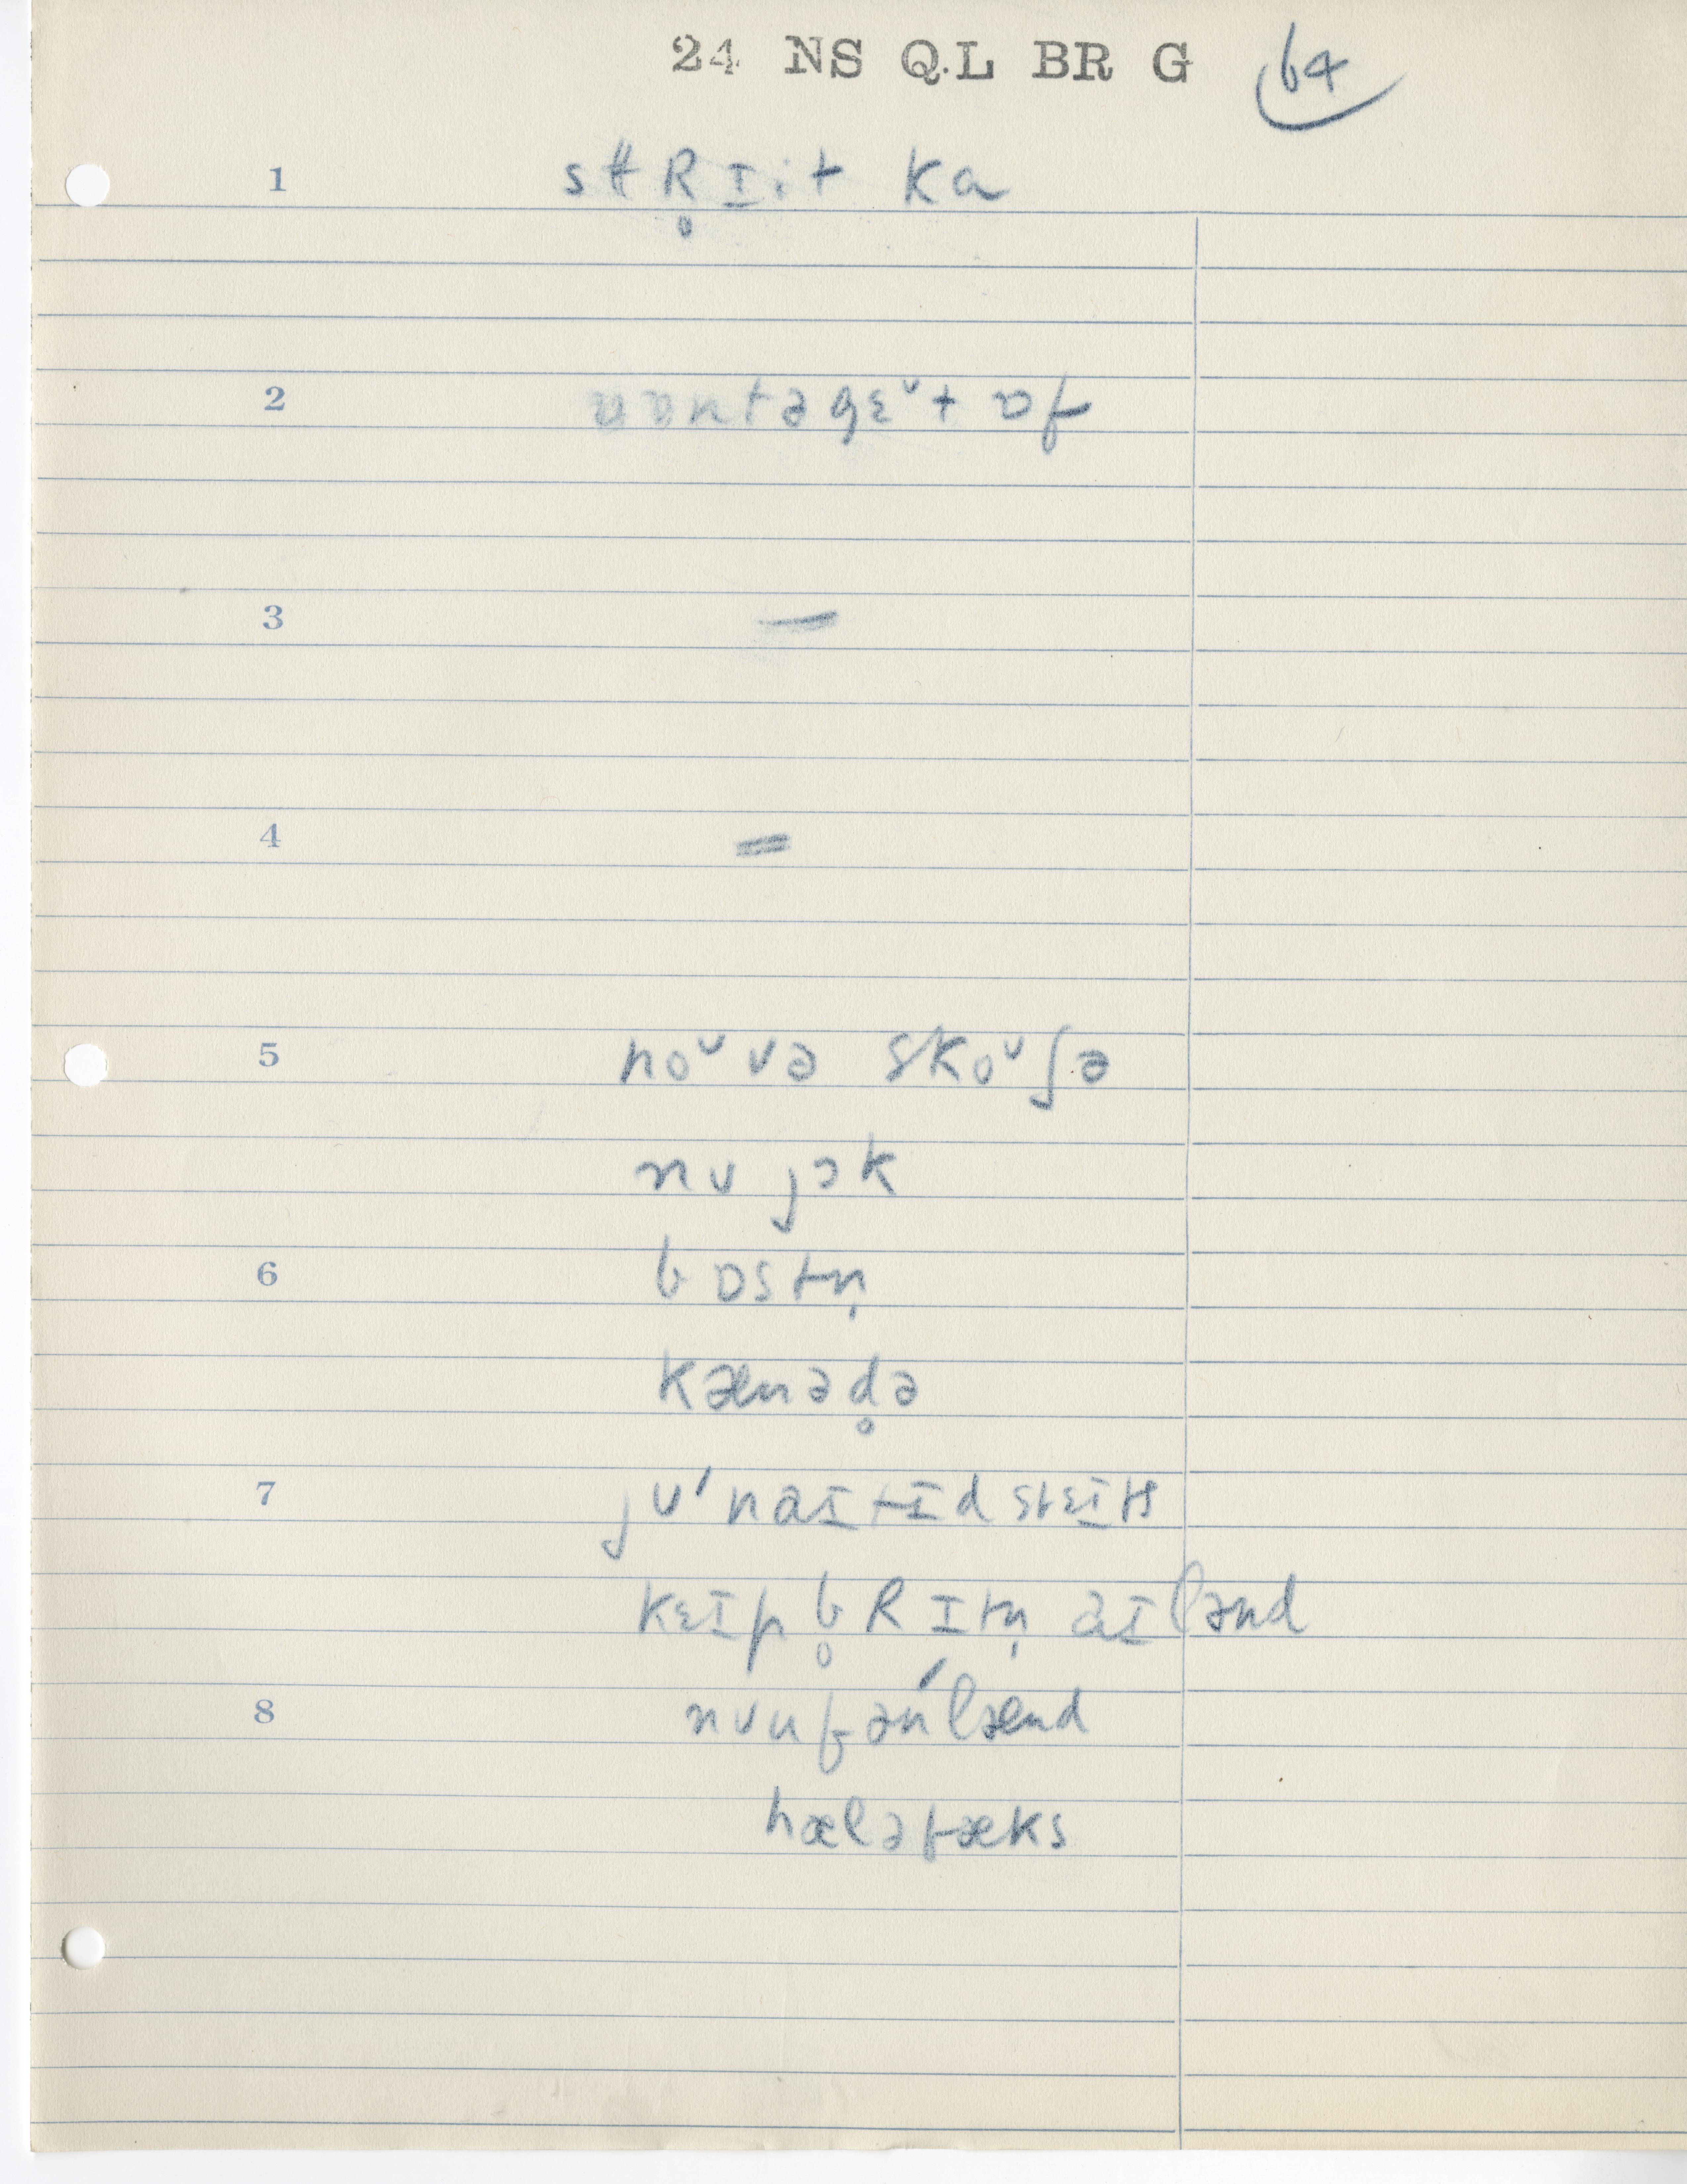 24 NS Q.L BR G 64
1 stR̥ɪit ka
2 wɒntəgɛᵛt ɒf
3 —
4 =
5 noᵛvə skoᵛʃə
nʊ jɔk
6 bɒstn̩
kænəd̥ə
7 jʊ'naɪtɪd steɪts
kɛɪp b̥Rɪtn̩ aɪlənd
8 nʊufən'lænd
hæləfæks